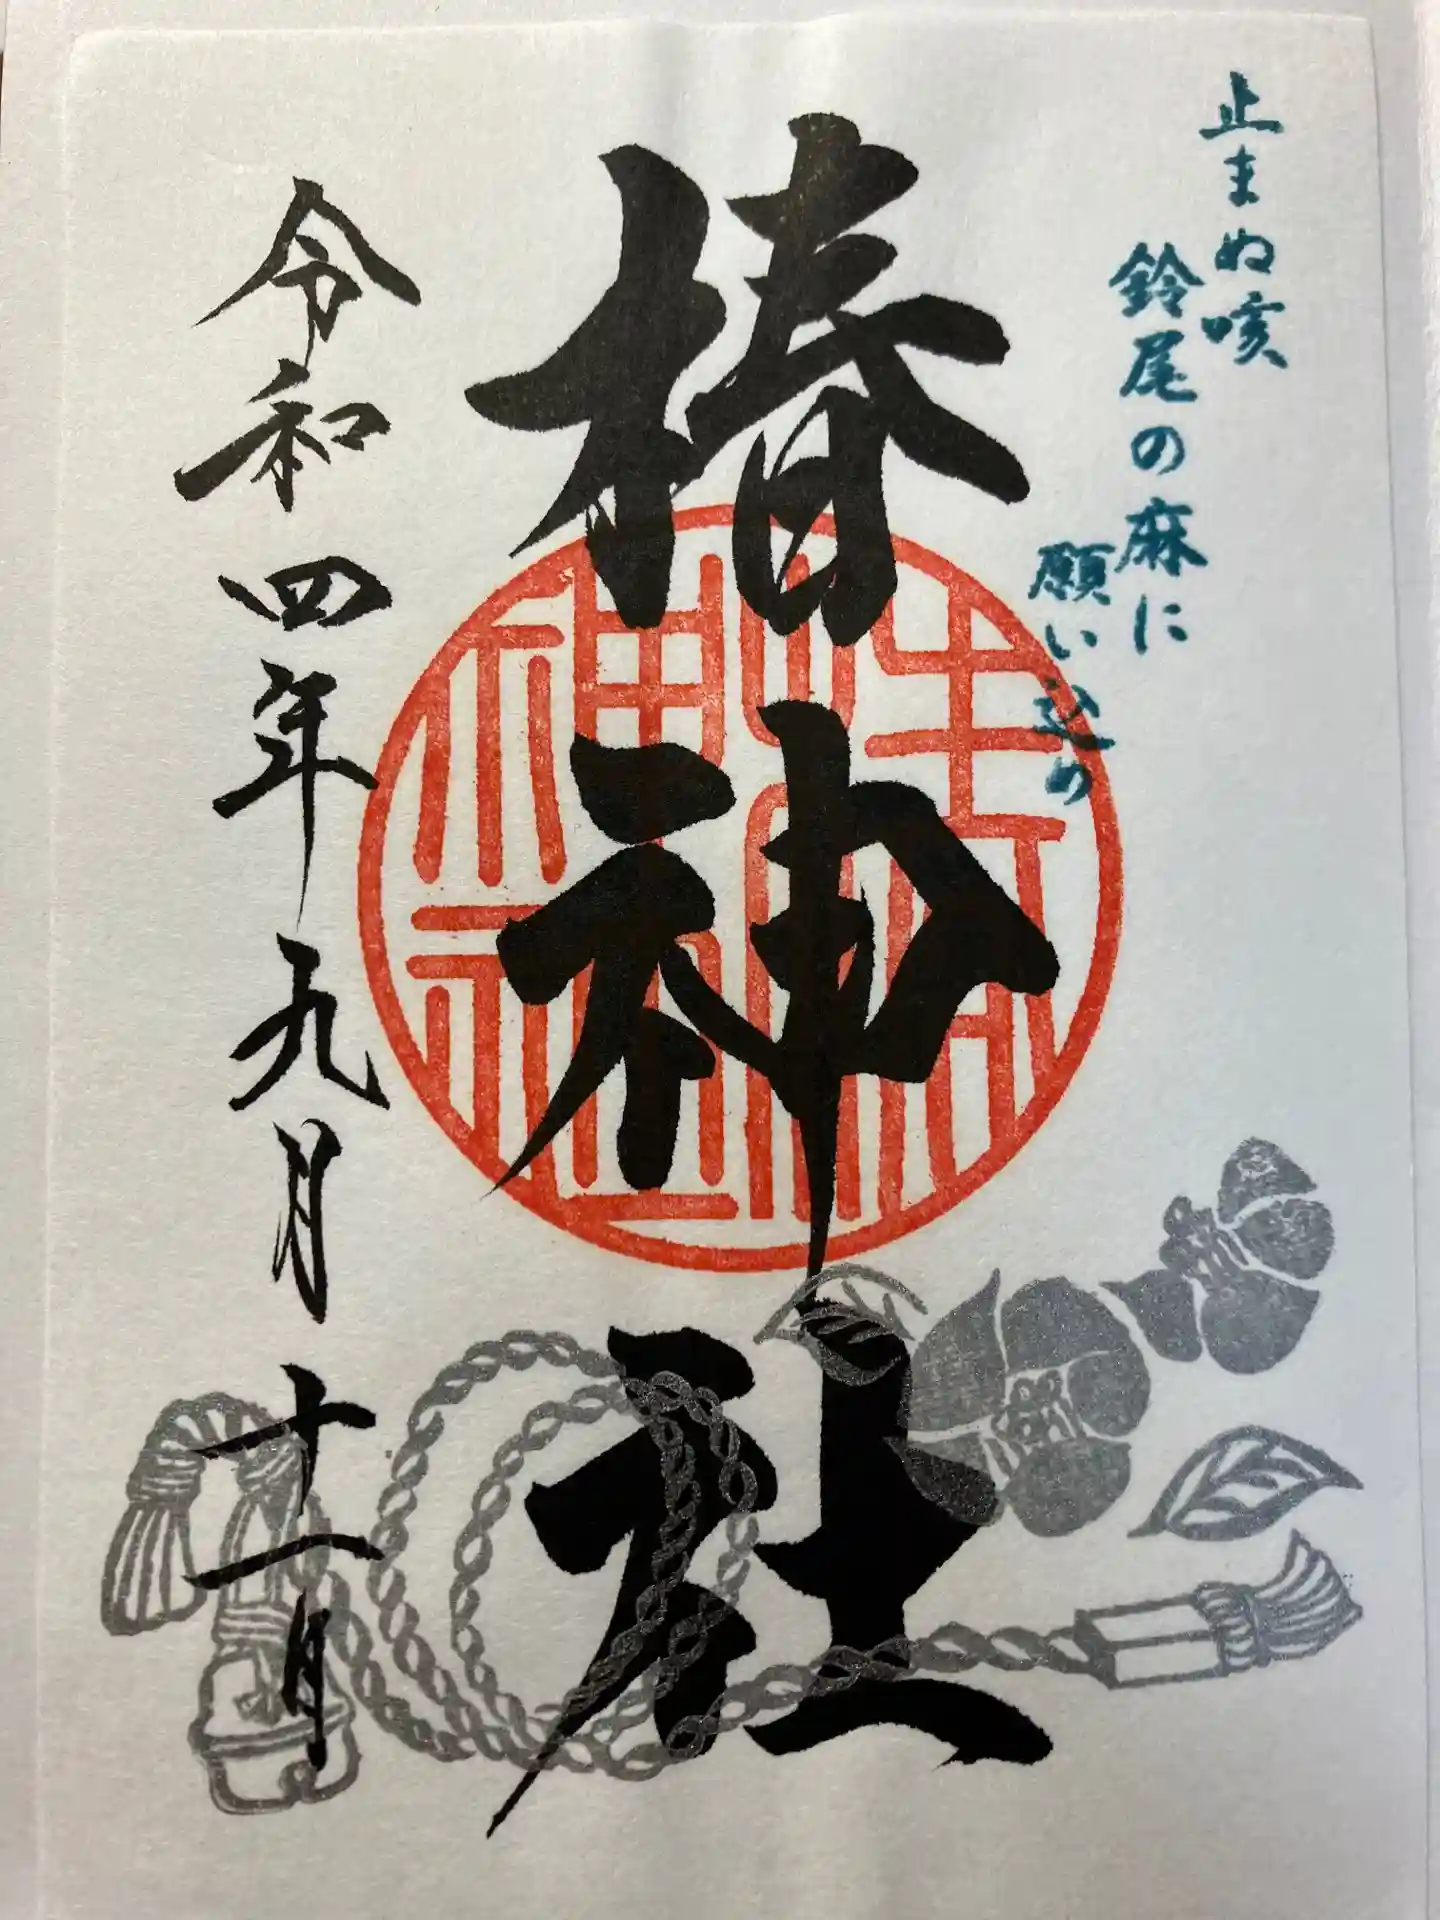 止まぬ咳
鈴尾の麻に
願い込め
椿神社
令和四年九月十一月